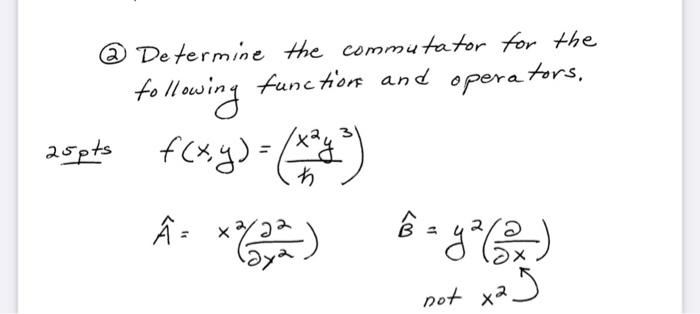 ② Determine the commutator for the
following function and operators.
25pts f(x,y) = (x²y³/ħ)
Â = x²(∂²/∂y²) B̂ = y²(∂/∂x)
not x²